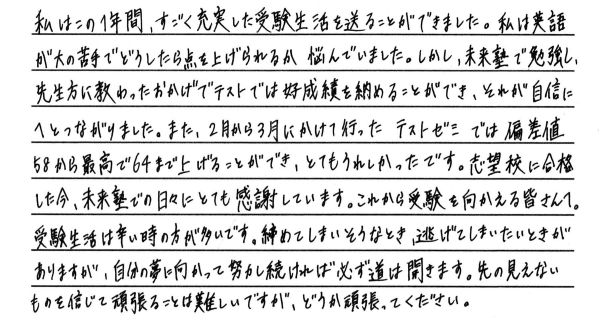 私はこの1年間、すごく充実した受験生活を送ることができました。私は英語
が大の苦手でどうしたら点を上げられるか悩んでいました。しかし、未来塾で勉強し、
先生方に教わったおかげでテストでは好成績を納めることができ、それが自信に
へとつながりました。また、2月から3月にかけて行ったテストゼミでは偏差値
58から最高で64まで上げることができ、とてもうれしかったです。志望校に合格
した今、未来塾での日々にとても感謝しています。これから受験を向かえる皆さんへ。
受験生活は辛い時の方が多いです。締めてしまいそうなとき、逃げてしまいたいときが
ありますが、自分の夢に向かって努力し続ければ必ず道は開きます。先の見えない
ものを信じて頑張ることは難しいですが、どうか頑張ってください。